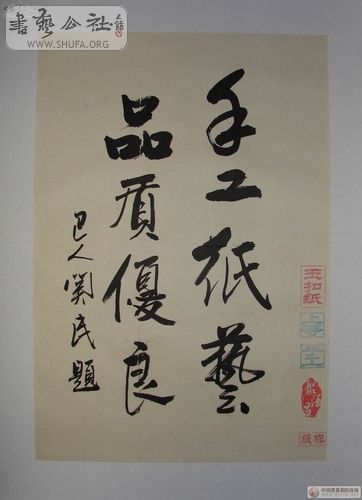 書藝公社
WWW.SHUFA.ORG
手工紙藝
品质優良
巴人関民題
玉扣紙
上等